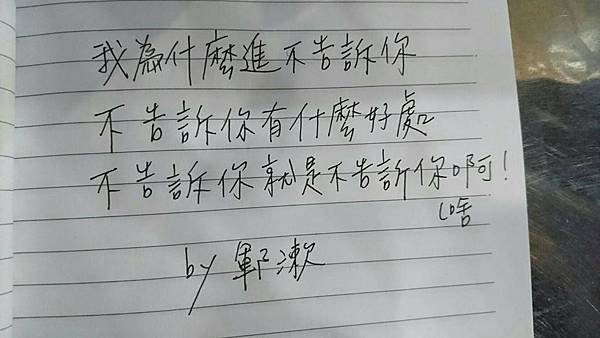 我為什麼進不告訴你
不告訴你有什麼好處
不告訴你就是不告訴你啊!
啥
by 鄆漱